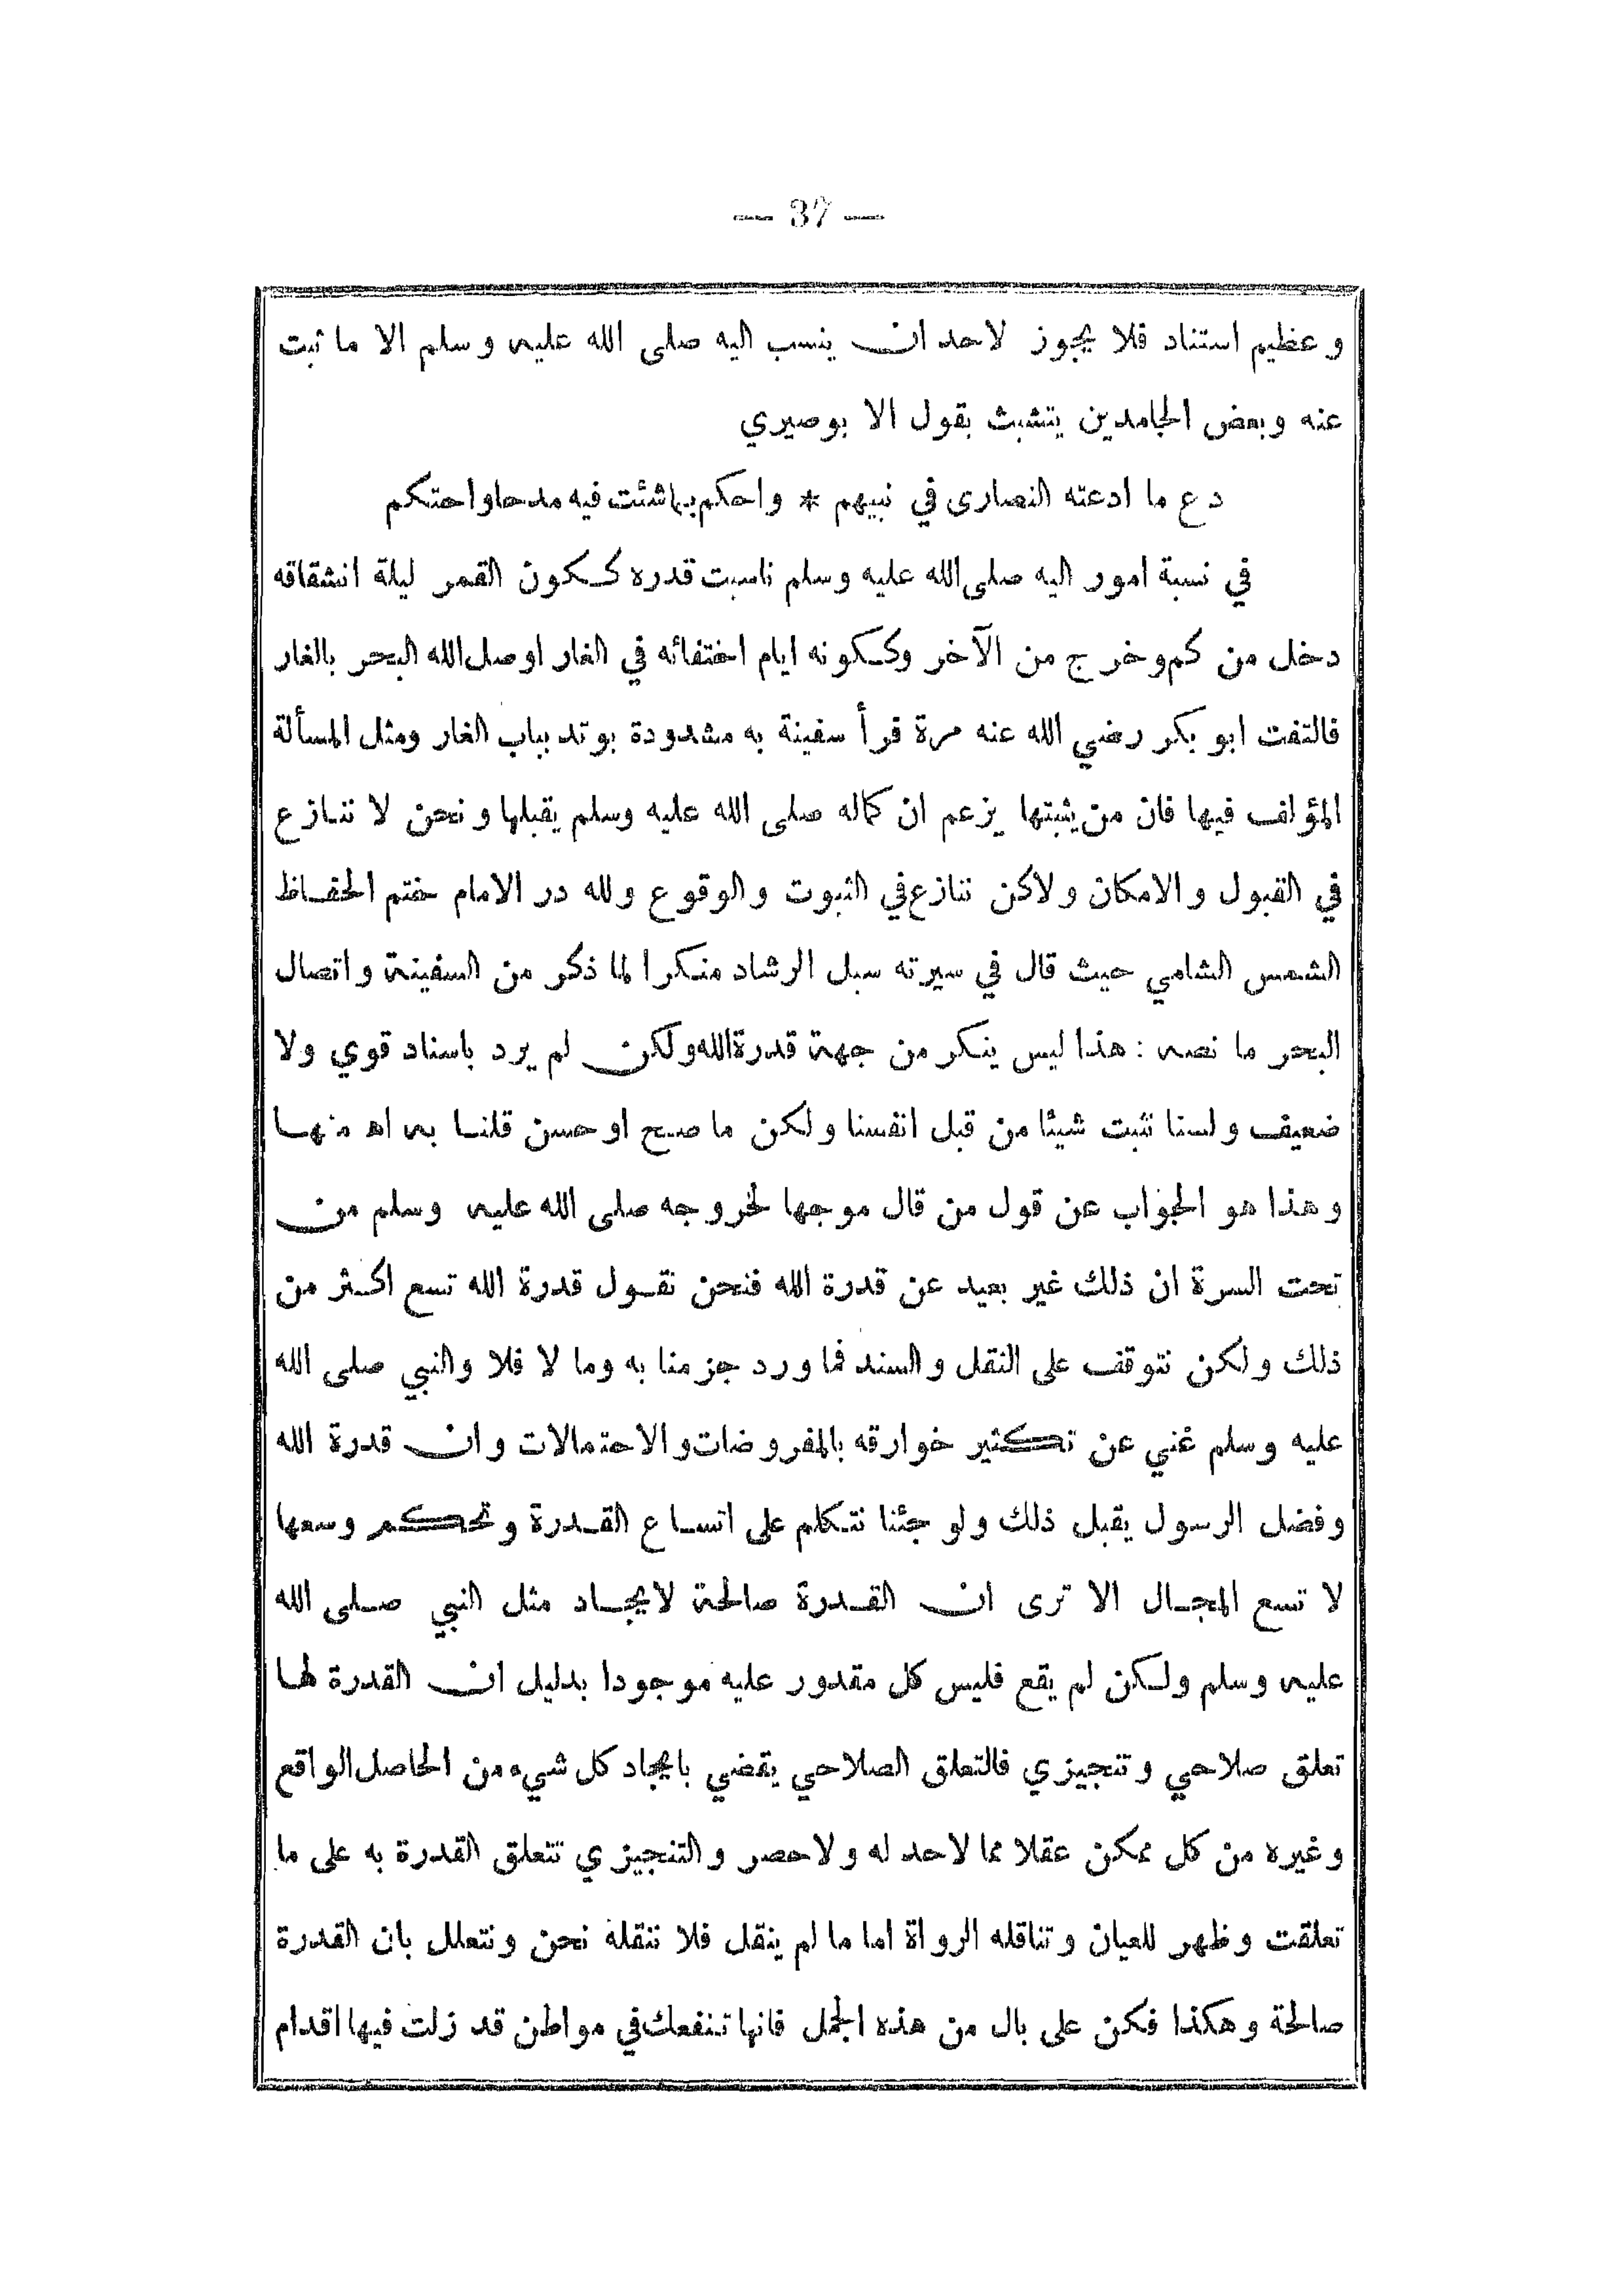 — 37 —
و عظيم استناد فلا يجوز لاحد ان ينسب اليه صلى الله عليه وسلم الا ما ثبت
عنه وبعض الجامدين يتشبث بقول الا بوصيري
دع ما ادعته النصارى في نبيهم * واحكم بما شئت فيه مدحا واحتكم
في نسبة امور اليه صلى الله عليه وسلم ناسبت قدره ككون القمر ليلة انشقاقه
دخل من كم وخرج من الآخر وككونه ايام اختفائه في الغار اوصل الله البحر بالغار
فالتفت ابو بكر رضي الله عنه مرة فرأ سفينة به مشدودة بوتد بباب الغار ومثل المسألة
المؤلف فيها فان من يثبتها يزعم ان كماله صلى الله عليه وسلم يقبلها ونحن لا ننازع
في القبول والامكان ولاكن ننازع في الثبوت والوقوع ولله در الامام ختم الحفاظ
الشمس الشامي حيث قال في سيرته سبل الرشاد منكرا لما ذكر من السفينة واتصال
البحر ما نصه : هذا ليس ينكر من جهة قدرة الله ولكن لم يرد باسناد قوي ولا
ضعيف ولسنا نثبت شيئا من قبل انفسنا ولكن ما صح او حسن قلنا به اه منها
وهذا هو الجواب عن قول من قال موجها لخروجه صلى الله عليه وسلم من
تحت السرة ان ذلك غير بعيد عن قدرة الله فنحن نقول قدرة الله تسع اكثر من
ذلك ولكن نتوقف على النقل والسند فما ورد جزمنا به وما لا فلا والنبي صلى الله
عليه وسلم غني عن تكثير خوارقه بالمفروضات والاحتمالات وان قدرة الله
وفضل الرسول يقبل ذلك ولو جئنا نتكلم على اتساع القدرة وتحكم وسعها
لا تسع المجال الا ترى ان القدرة صالحة لايجاد مثل النبي صلى الله
عليه وسلم ولكن لم يقع فليس كل مقدور عليه موجودا بدليل ان القدرة لها
تعلق صلاحي وتنجيزي فالتعلق الصلاحي يقضي بايجاد كل شيء من الحاصل الواقع
وغيره من كل ممكن عقلا مما لا حد له ولا حصر والتنجيزي تتعلق القدرة به على ما
تعلقت وظهر للعيان وتناقله الرواة اما ما لم ينقل فلا ننقله نحن ونتعلل بان القدرة
صالحة وهكذا فكن على بال من هذه الجمل فانها تنفعك في مواطن قد زلت فيها اقدام